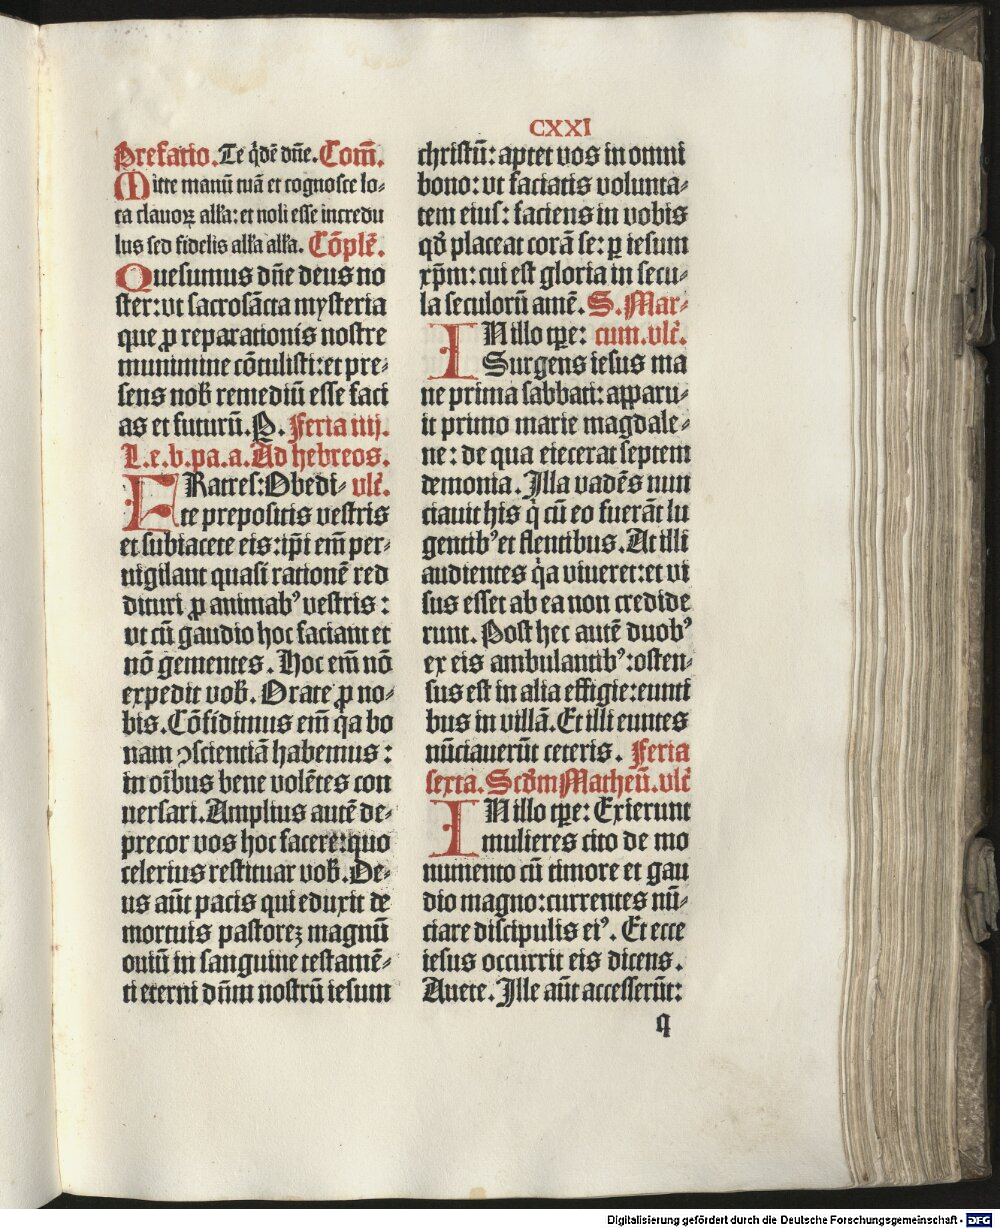 CXXI
Prefatio. Te q̇dē dn̄e. Com̄.
Mitte manū tuā et cognosce lo-
ca clauoꝝ all'a: et noli esse incredu
lus sed fidelis all'a all'a. Cōplē.
Quesumus dn̄e deus no
ster: vt sacrosācta mysteria
que ꝓ reparationis nostre
munimine cōtulisti: et pre-
sens nob̄ remediū esse faci
as et futurū. P. Feria iiij.
L. e. b. pa. a. Ad hebreos.
FRatres: Obedi- vlē.
te prepositis vestris
et subiacete eis: ip̄i em̄ per-
uigilant quasi rationē red
dituri ꝓ animab᾽ vestris:
vt cū gaudio hoc faciant et
nō gementes. Hoc em̄ nō
expedit vob̄. Orate ꝓ no-
bis. Cōfidimus em̄ q̇a bo
nam ꝯscientiā habemus:
in oībus bene volētes con
uersari. Amplius autē de-
precor vos hoc facere: quo
celerius restituar vob̄. De-
us aūt pacis qui eduxit de
mortuis pastorēꝫ magnū
ouiū in sanguine testamē-
ti eterni dn̄m nostrū iesum
christū: aptet vos in omni
bono: vt faciatis volunta-
tem eius: faciens in vobis
qd̄ placeat corā se: ꝑ iesum
xp̄m: cui est gloria in secu-
la seculorū amē. S. Mar-
IN illo tꝑe: cum. vlē.
Surgens iesus ma
ne prima sabbati: apparu-
it primo marie magdale-
ne: de qua eiecerat septem
demonia. Illa vadēs nun
ciauit his q̇ cū eo fuerāt lu
gentib᾽ et flentibus. At illi
audientes q̇a viueret: et vi
sus esset ab ea non credide
runt. Post hec autē duob᾽
ex eis ambulantib᾽: osten-
sus est in alia effigie: eunti
bus in villā. Et illi euntes
nūciauerūt ceteris. Feria
sexta. Scd̄m Matheū. vlē
IN illo tꝑe: Exierunt
mulieres cito de mo
numento cū timore et gau
dio magno: currentes nū-
ciare discipulis ei᾽. Et ecce
iesus occurrit eis dicens.
Auete. Ille aūt accesserūt:
q
Digitalisierung gefördert durch die Deutsche Forschungsgemeinschaft - DFG